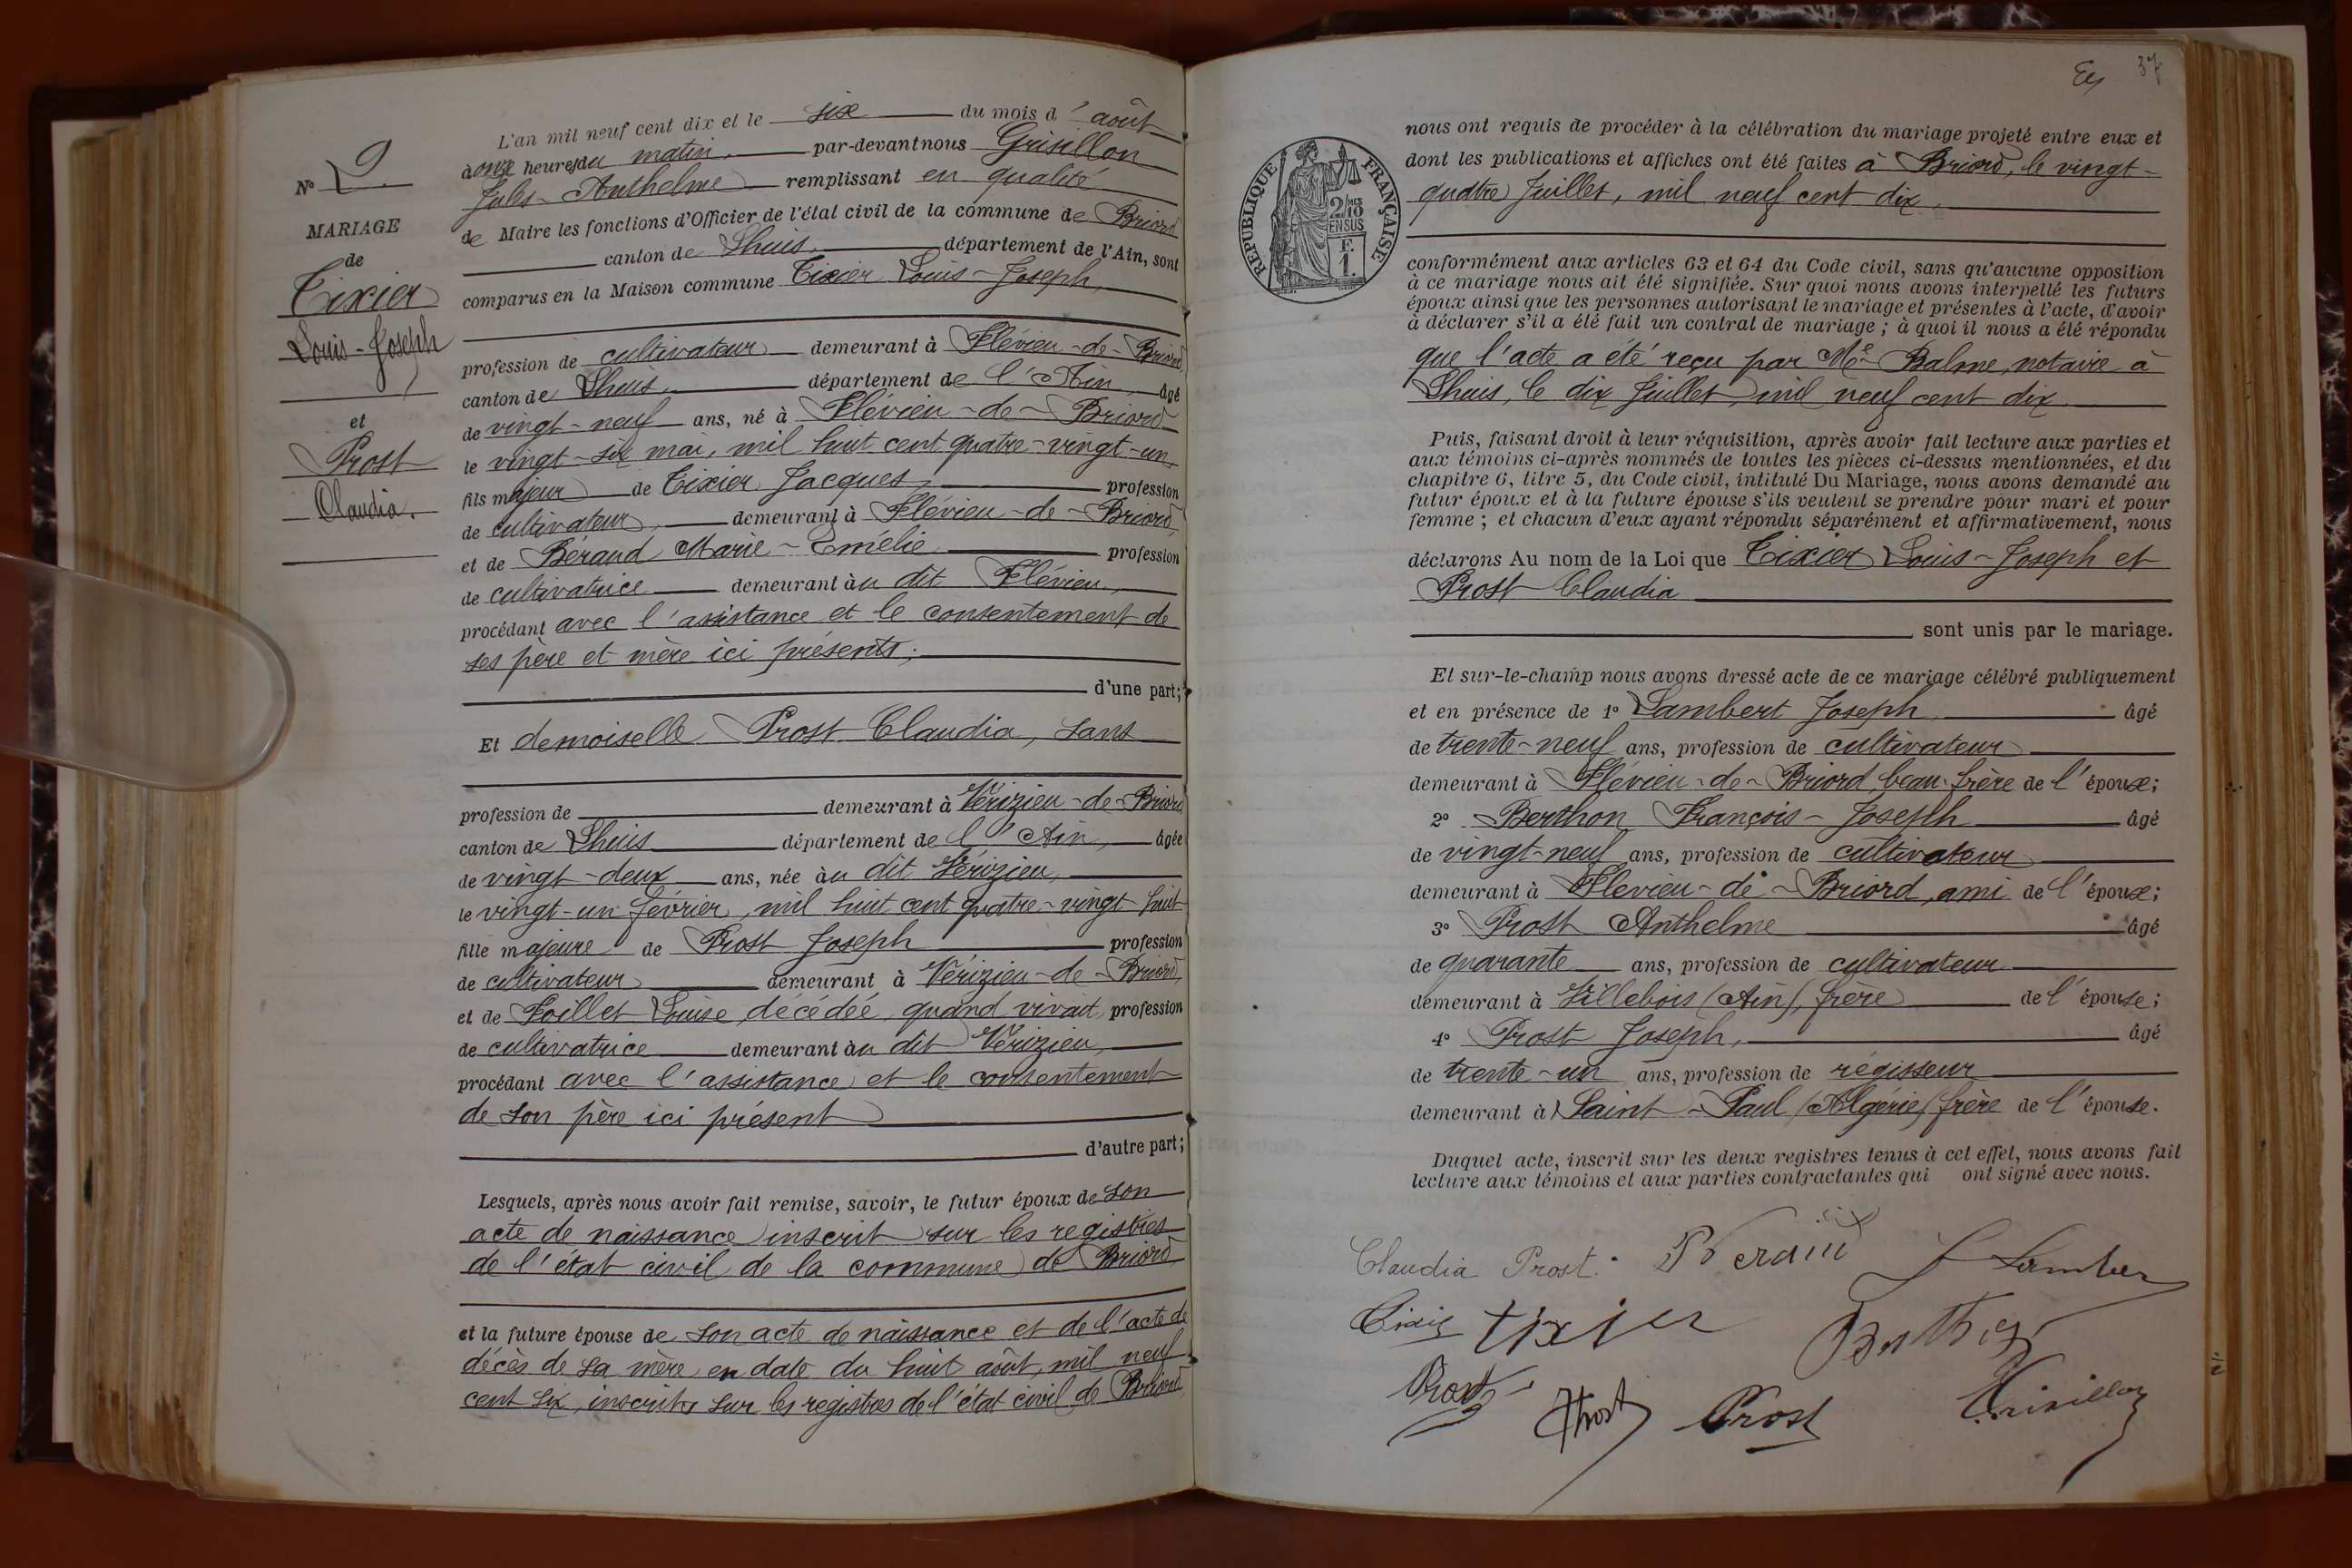 N° 9
MARIAGE
de
Tixier
Louis-Joseph
et
Prost
Claudia.
L'an mil neuf cent dix et le six du mois d'août
à onze heures du matin, par-devant nous Grisillon
Jules-Anthelme remplissant en qualité
de Maire les fonctions d'Officier de l'état civil de la commune de Briord
canton de Lhuis, département de l'Ain, sont
comparus en la Maison commune Tixier Louis-Joseph,
profession de cultivateur demeurant à Flévieu-de-Briord,
canton de Lhuis, département de l'Ain âgé
de vingt-neuf ans, né à Flévieu-de-Briord
le vingt-six mai, mil huit cent quatre-vingt-un,
fils majeur de Tixier Jacques, profession
de cultivateur, demeurant à Flévieu-de-Briord,
et de Béraud Marie-Emélie profession
de cultivatrice demeurant au dit Flévieu,
procédant avec l'assistance et le consentement de
ses père et mère ici présents;
d'une part;
Et demoiselle Prost Claudia, sans
profession de demeurant à Vérizieu-de-Briord
canton de Lhuis département de l'Ain, âgée
de vingt-deux ans, née au dit Vérizieu,
le vingt-un février, mil huit cent quatre-vingt huit
fille majeure de Prost Joseph profession
de cultivateur demeurant à Vérizieu-de-Briord,
et de Foillet Louise, décédée, quand vivait, profession
de cultivatrice demeurant au dit Vérizieu,
procédant avec l'assistance et le consentement
de son père ici présent
d'autre part;
Lesquels, après nous avoir fait remise, savoir, le futur époux de son
acte de naissance inscrit sur les registres
de l'état civil de la commune de Briord
et la future épouse de son acte de naissance et de l'acte de
décès de sa mère en date du huit août, mil neuf
cent six, inscrits sur les registres de l'état civil de Briord
37
nous ont requis de procéder à la célébration du mariage projeté entre eux et
dont les publications et affiches ont été faites à Briord, le vingt-
quatre Juillet, mil neuf cent dix,
RÉPUBLIQUE FRANÇAISE
2/10 MES
EN SUS
F.
1.
conformément aux articles 63 et 64 du Code civil, sans qu'aucune opposition
à ce mariage nous ait été signifiée. Sur quoi nous avons interpellé les futurs
époux ainsi que les personnes autorisant le mariage et présentes à l'acte, d'avoir
à déclarer s'il a été fait un contrat de mariage ; à quoi il nous a été répondu
que l'acte a été reçu par Me Balme, notaire à
Lhuis, le dix Juillet, mil neuf cent dix
Puis, faisant droit à leur réquisition, après avoir fait lecture aux parties et
aux témoins ci-après nommés de toutes les pièces ci-dessus mentionnées, et du
chapitre 6, titre 5, du Code civil, intitulé Du Mariage, nous avons demandé au
futur époux et à la future épouse s'ils veulent se prendre pour mari et pour
femme ; et chacun d'eux ayant répondu séparément et affirmativement, nous
déclarons Au nom de la Loi que Tixier Louis-Joseph et
Prost Claudia
sont unis par le mariage.
Et sur-le-champ nous avons dressé acte de ce mariage célébré publiquement
et en présence de 1° Lambert Joseph, âgé
de trente-neuf ans, profession de cultivateur
demeurant à Flévieu-de-Briord, beau-frère de l'époux;
2° Berthon François-Joseph âgé
de vingt-neuf ans, profession de cultivateur
demeurant à Flévieu-de-Briord, ami de l'époux;
3° Prost Anthelme âgé
de quarante ans, profession de cultivateur
demeurant à Villebois (Ain), frère de l'épouse;
4° Prost Joseph, âgé
de trente-un ans, profession de régisseur
demeurant à Saint-Paul (Algerie) frère de l'épouse.
Duquel acte, inscrit sur les deux registres tenus à cet effet, nous avons fait
lecture aux témoins et aux parties contractantes qui ont signé avec nous.
Claudia Prost. J Lamber
tixier
Prost Prost Prost Grisillon